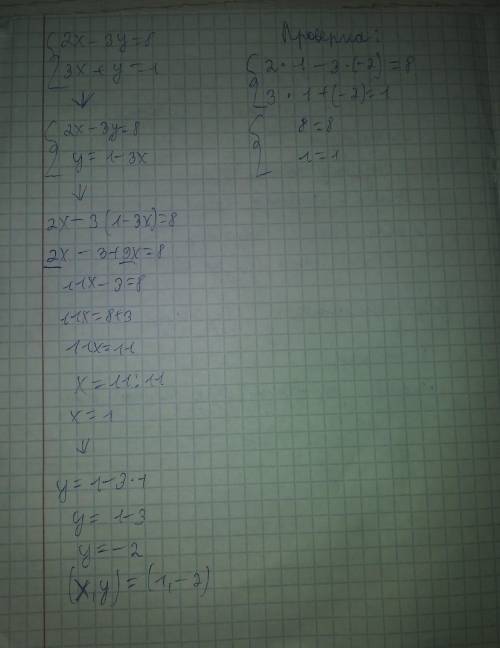 2x - 3y = 8
3x + y = 1
↓
2x - 3y = 8
y = 1 - 3x
↓
2x - 3(1 - 3x) = 8
2x - 3 + 9x = 8
11x - 3 = 8
11x = 8 + 3
11x = 11
x = 11 : 11
x = 1
↓
y = 1 - 3 · 1
y = 1 - 3
y = -2
(x, y) = (1, -2)
Проверка:
2 · 1 - 3 · (-2) = 8
3 · 1 + (-2) = 1
8 = 8
1 = 1